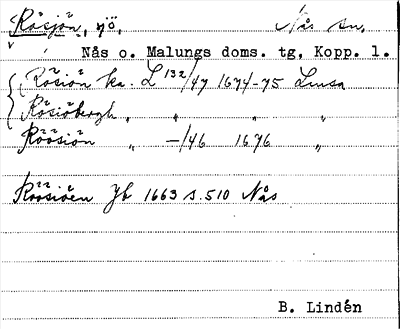 Rösjön, sjö, Nås sn,
Nås o. Malungs doms. tg, Kopp. l.
Rösiön ka. L 132/47 1674-75 Lmsa
Rösiöbergh " " " "
Röösiön " -/46 1676 "
Röösiöen Jb 1663 s. 510 Nås
B. Lindén